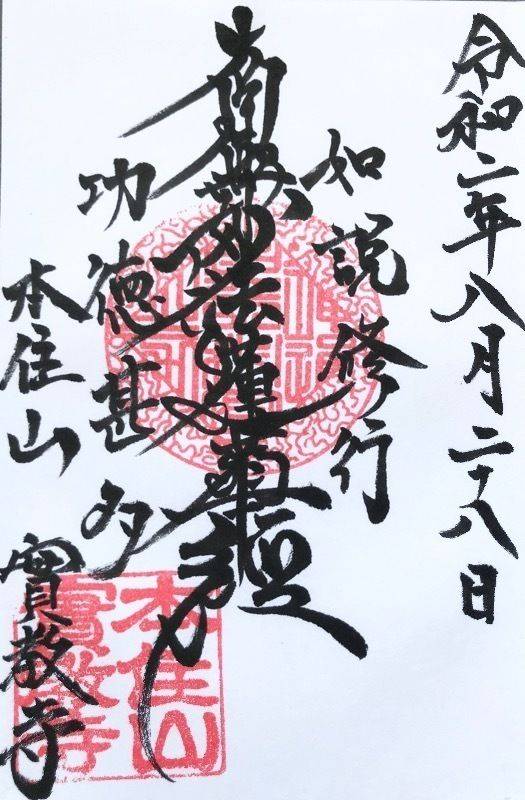 令和二年八月二十八日
如説修行
南無妙法蓮華経
功徳甚多
本住山
實教寺
本住山
實教寺